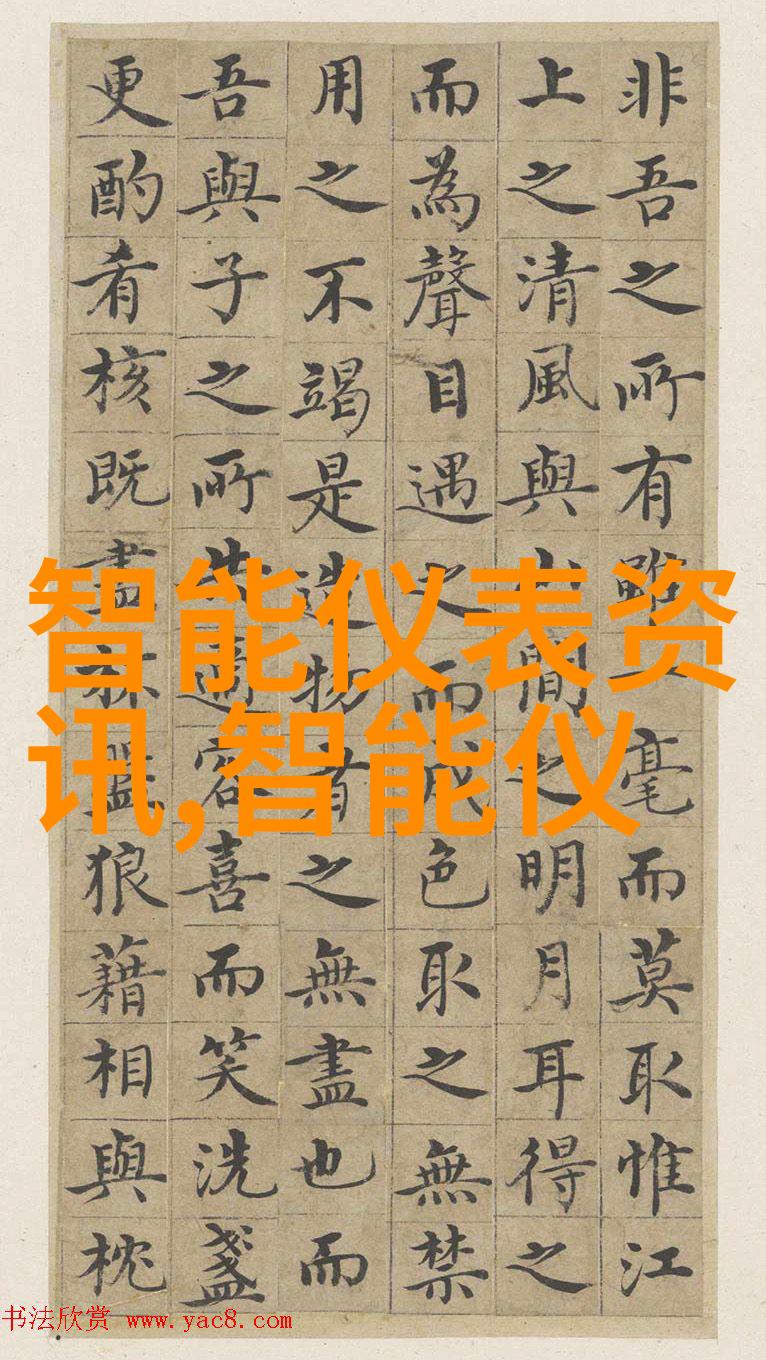 非吾之所有雖一毫而莫取惟江
上之清風與山間之明月耳得之
而為聲目遇之而成色取之無禁
用之不竭是造物者之無盡也而
吾與子之所共適客喜而笑洗盞
更酌肴核既盡杯盤狼藉相與枕
智能仪表资
讯,智能仪
书法欣赏 www.yac8.com